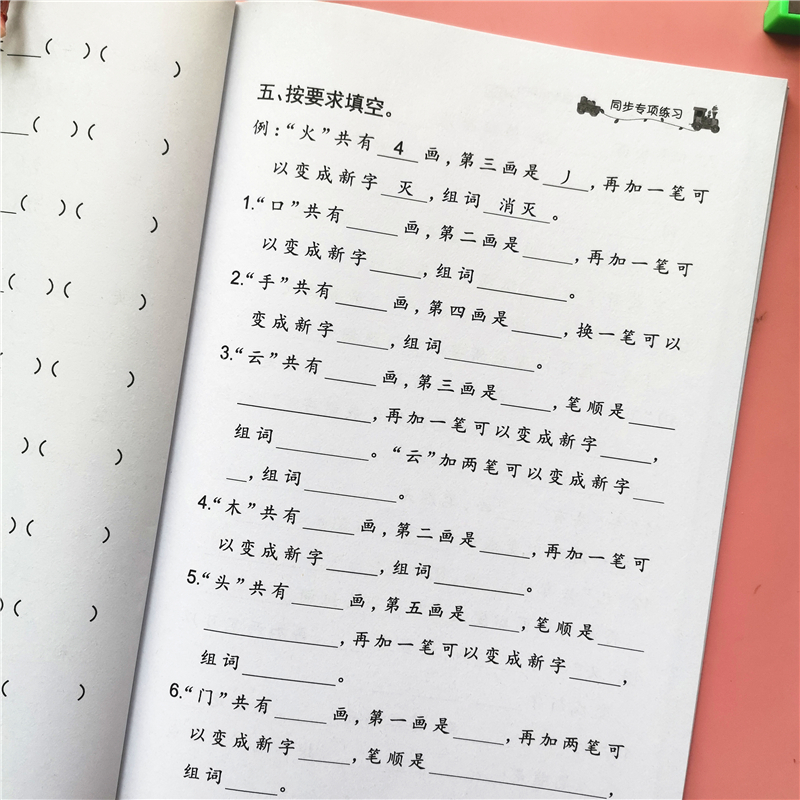 ( )( )
( )( )
( )( )
( )( )
( )( )
)( )
)( )
)( )
( )
同步专项练习
五、按要求填空。
例：“火”共有 4 画，第三画是 丿 ，再加一笔可
以变成新字 灭 ，组词 消灭 。
1.“口”共有____画，第二画是____，再加一笔可
以变成新字____，组词________。
2.“手”共有____画，第四画是____，换一笔可以
变成新字____，组词________。
3.“云”共有____画，第三画是____，笔顺是____
____________，再加一笔可以变成新字____，
组词________。“云”加两笔可以变成新字___
__，组词________。
4.“木”共有____画，第二画是____，再加一笔可
以变成新字____，组词________。
5.“头”共有____画，第五画是____，笔顺是____
____________，再加一笔可以变成新字____，
组词________。
6.“门”共有____画，第一画是____，再加两笔可
以变成新字____，笔顺是________________，
组词____。